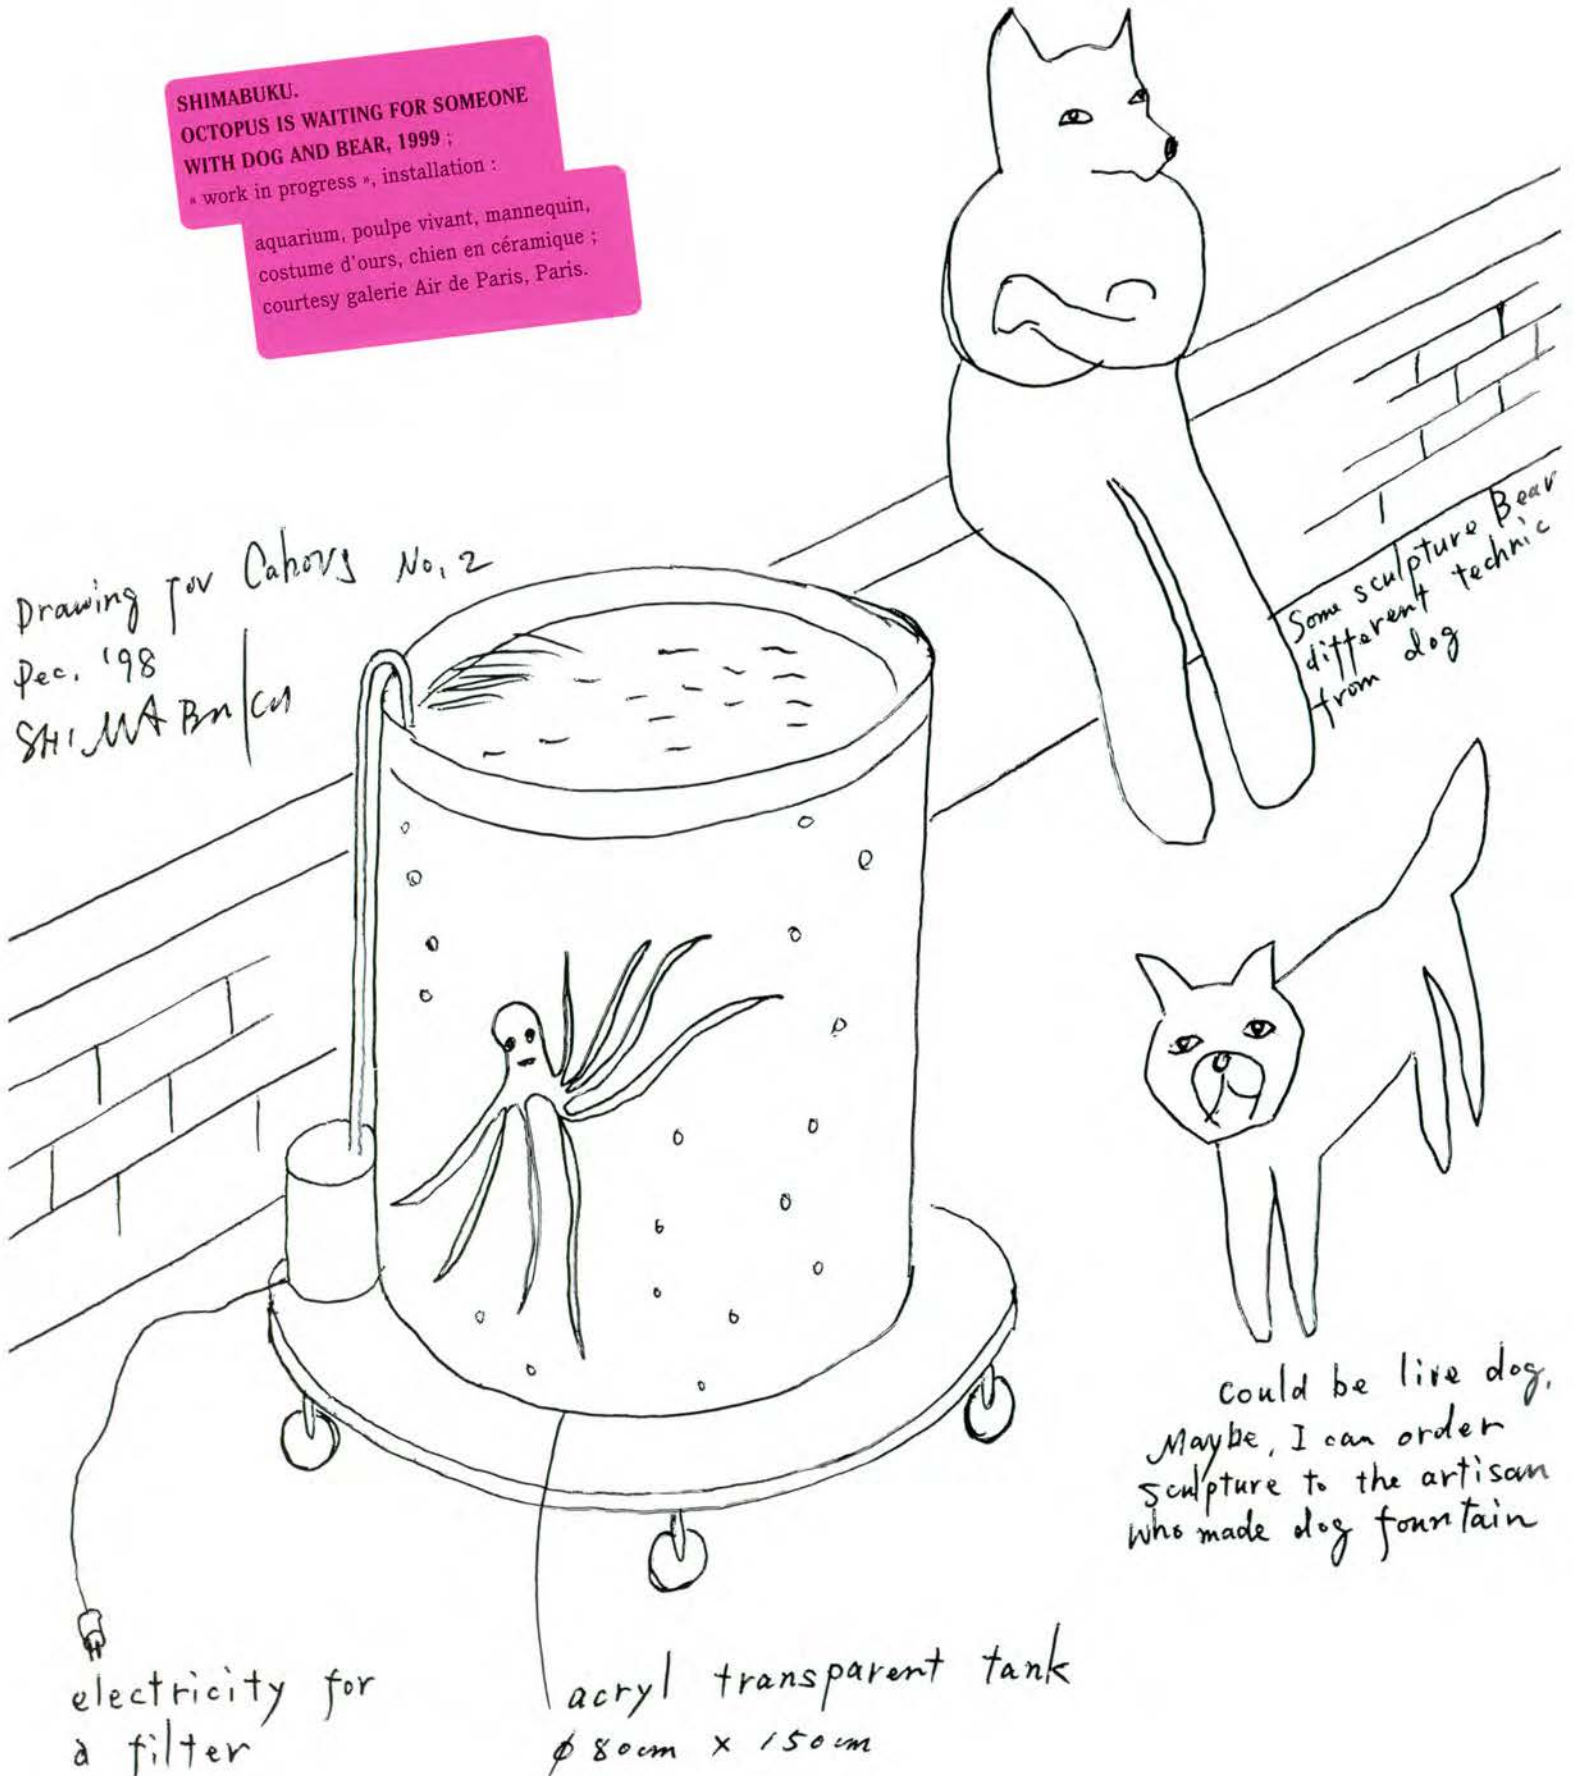 SHIMABUKU.
OCTOPUS IS WAITING FOR SOMEONE
WITH DOG AND BEAR, 1999 ;
« work in progress », installation :
aquarium, poulpe vivant, mannequin,
costume d'ours, chien en céramique ;
courtesy galerie Air de Paris, Paris.
Drawing for Cahors No. 2
Dec. '98
SHIMABUKU
Some sculpture Bear
different technic
from dog
Could be live dog,
Maybe, I can order
sculpture to the artisan
who made dog fountain
electricity for
a filter
acryl transparent tank
φ 80cm × 150cm